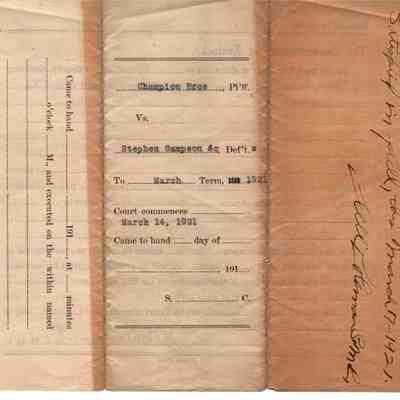 Came to hand ______ 191__, at ____ minutes
____ o'clock ____ M., and executed on the within named
Champion Bros , Pl'ff.
Vs.
Stephen Sampson &c Def't. s
To March Term, 191 1921
Court commences
March 14, 1921
Came to hand ____ day of ____
____, 191__
S. ____ C.
in full, March 17-1921.